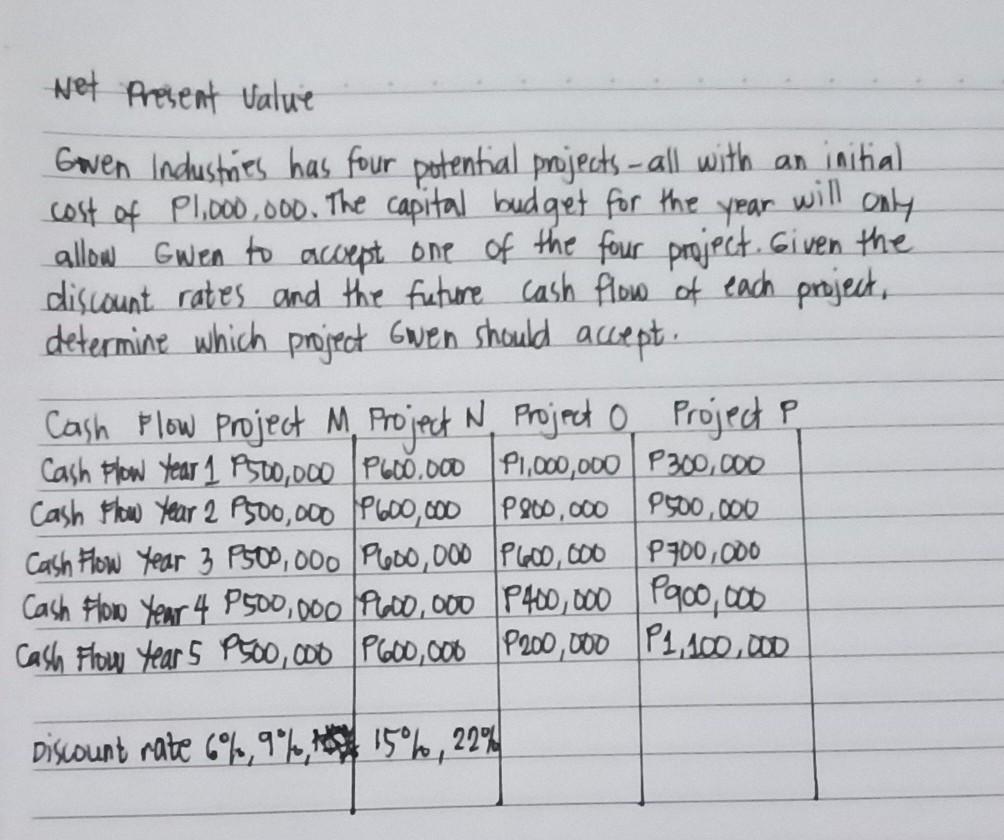 Net Present Value
Gwen Industries has four potential projects - all with an initial
cost of P1,000,000. The capital budget for the year will only
allow Gwen to accept one of the four project. Given the
discount rates and the future cash flow of each project,
determine which project Gwen should accept.
Cash Flow Project M Project N Project O Project P
Cash Flow Year 1 P500,000 P600.000 P1,000,000 P300,000
Cash Flow Year 2 P500,000 P600,000 P800,000 P500,000
Cash Flow Year 3 P500,000 P600,000 P600,000 P700,000
Cash Flow Year 4 P500,000 P600,000 P400,000 P900,000
Cash Flow Year 5 P500,000 P600,000 P200,000 P1,100,000
Discount rate 6%, 9%, 15%, 22%